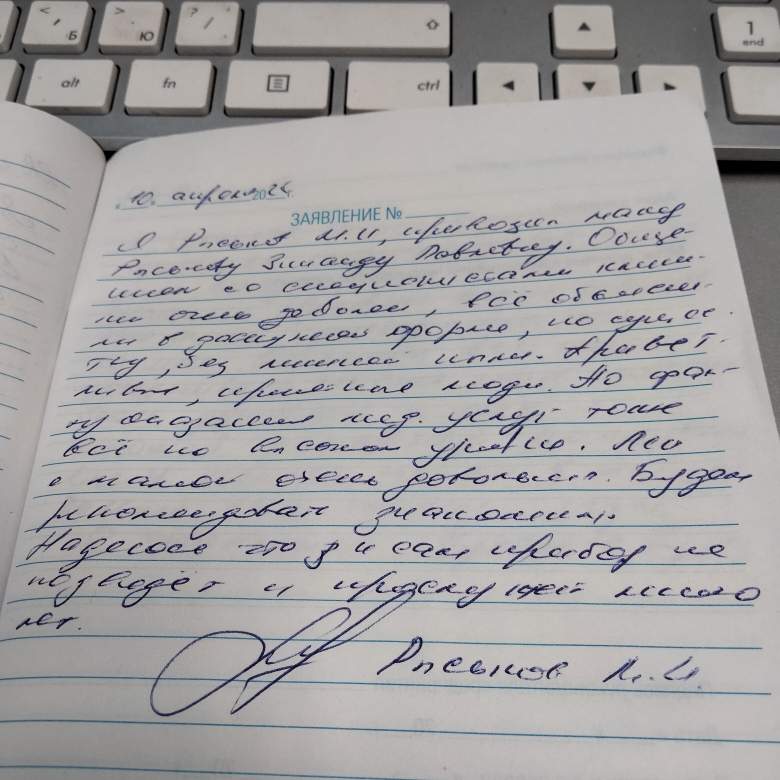 Б
Ю
alt
fn
ctrl
1
end
10. апреля 2024 г.
ЗАЯВЛЕНИЕ №
Я М.И, привозил маму
Зинаиду Павловну. Обще-
нием со специалистами клини-
ки очень доволен, всё объясни-
ли в доступной форме, по сущес-
тву, без лишней. Привет-
ливые, приятные люди. По фак-
ту оказания мед. услуг тоже
всё на высоком уровне.
с мамой очень довольны. Будем
рекомендовать знакомым.
Надеюсь что и сам прибор не
подведёт и прослужит много
лет.
М.И.